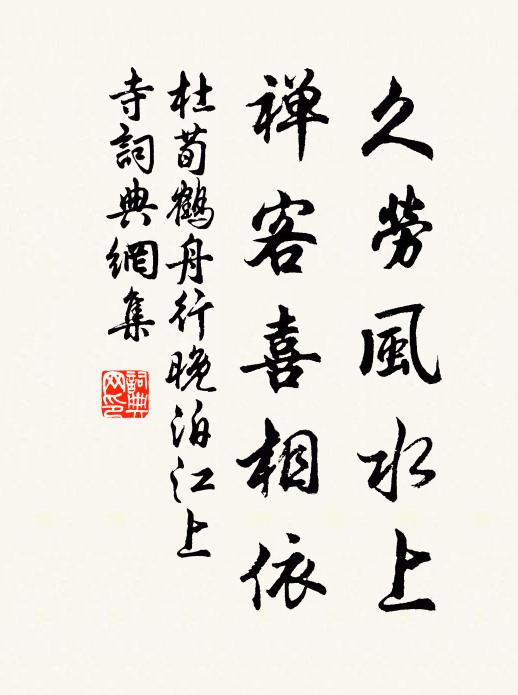 久勞風水上
禅客喜相依
杜荀鶴舟行晚泊江上
寺詞典網集
詞典网印